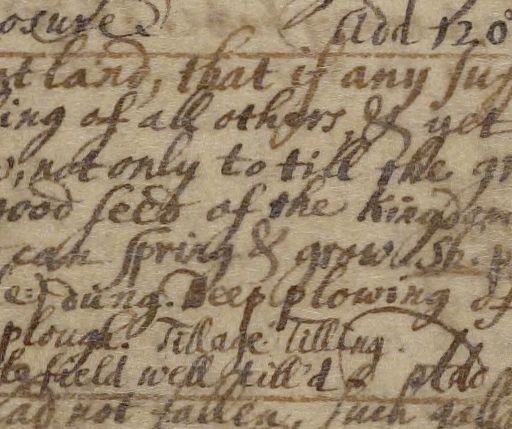 osure Add 120
tland, that if any suf
ling of all others, & yet
, not only to till the gr
good seed of the Kingdom
can spring & grow. Sh. p
dung. Deep plowing of
plough. Tillage Tilling.
field well till'd
not fallen, such